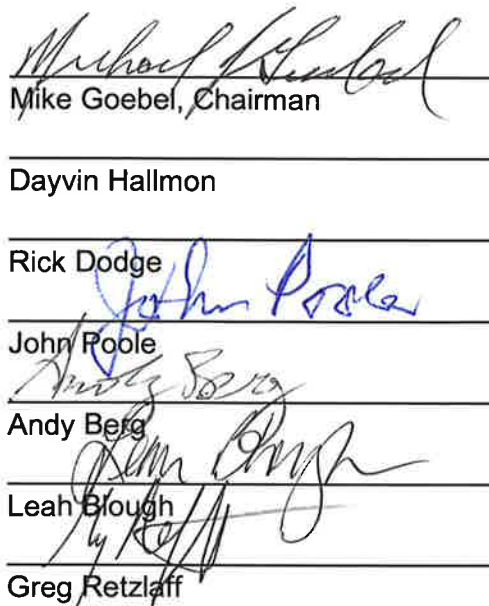 Michael Goebel
Mike Goebel, Chairman
Dayvin Hallmon
Rick Dodge
John Poole
John Poole
Andy Berg
Andy Berg
Leah Blough
Leah Blough
Greg Retzlaff